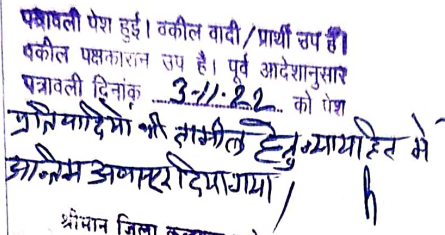 पत्रावली पेश हुई। वकील वादी/प्रार्थी उप है।
वकील पक्षकारान उप है। पूर्व आदेशानुसार
पत्रावली दिनांक 3-11-22 को पेश
प्रतिवादियों की तामील हेतु न्यायहित में
अन्तिम अवसर दिया गया।
श्रीमान जिला